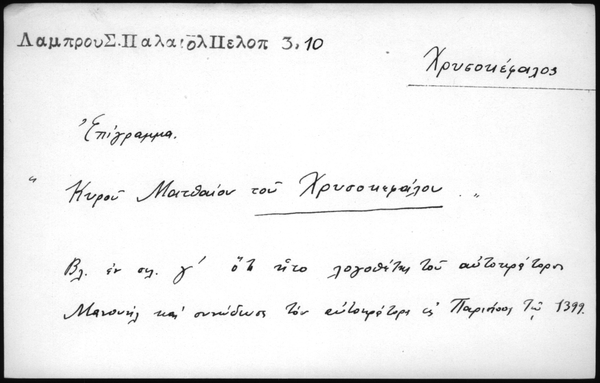 ΛαμπρουΣ.ΠαλαιόλΠελοπ 3,10
Χρυσοκέφαλος
Ἐπίγραμμα.
" Κυροῦ Ματθαίου τοῦ Χρυσοκεφάλου. "
Βλ. ἐν σελ. γ' ὅτι ἦτο λογοθέτης τοῦ αὐτοκράτορος
Μανουήλ καὶ συνώδευσε τὸν αὐτοκράτορα εἰς Παρισίους τῷ 1399.